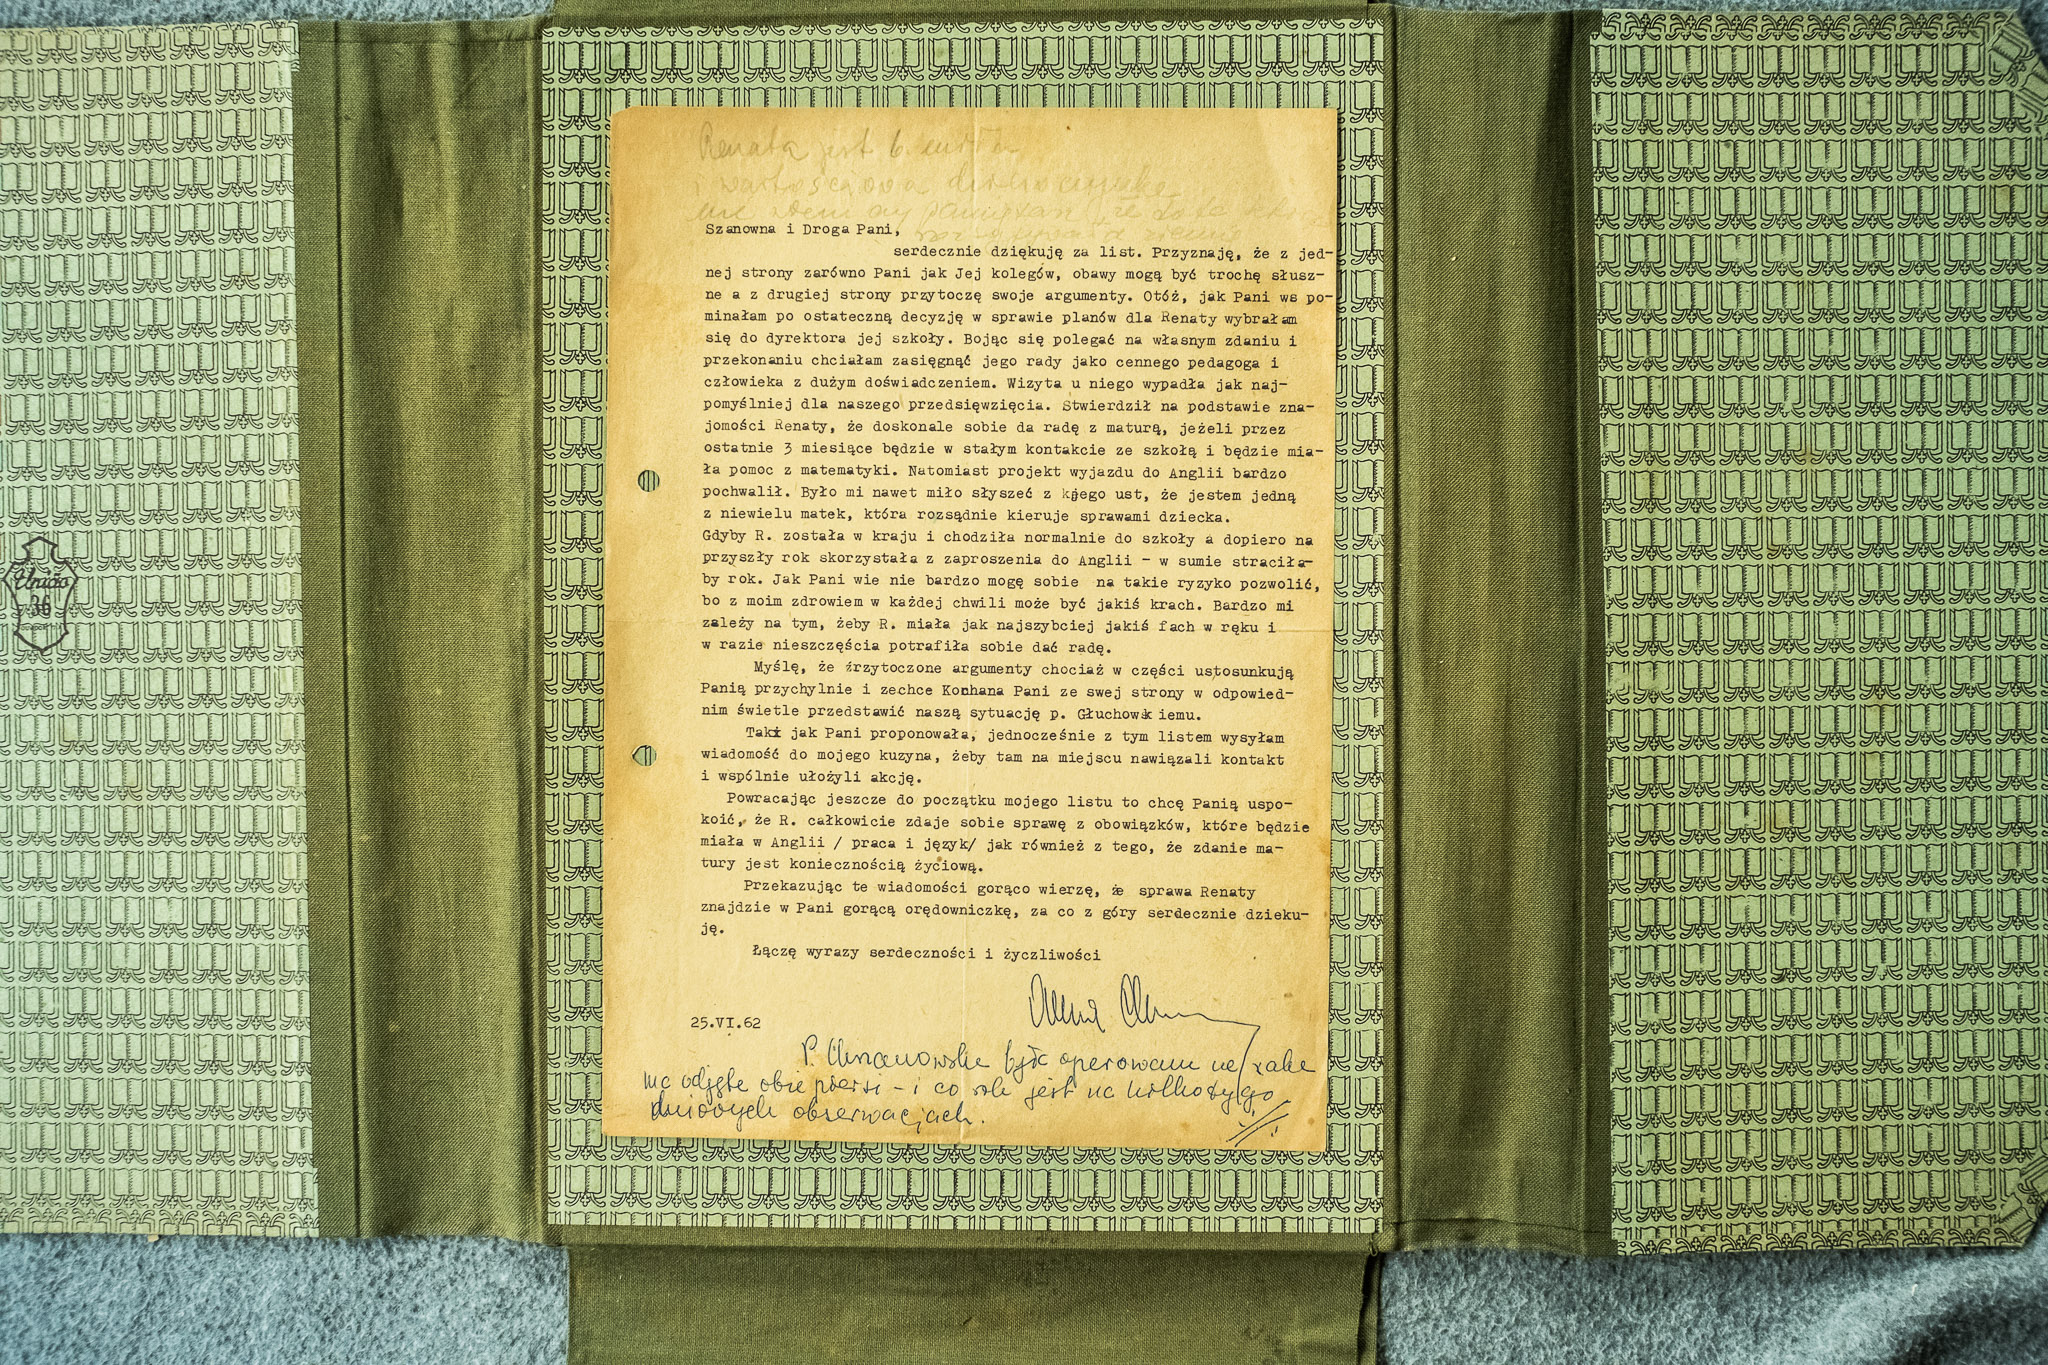 Renata jest b.
i wartościową dziewczynką
nie wiem czy pamiętam, że
Szanowna i Droga Pani,
serdecznie dziękuję za list. Przyznaję, że z jed-
nej strony zarówno Pani jak Jej kolegów, obawy mogą być trochę słusz-
ne a z drugiej strony przytoczę swoje argumenty. Otóż, jak Pani ws po-
minałam po ostateczną decyzję w sprawie planów dla Renaty wybrałam
się do dyrektora jej szkoły. Bojąc się polegać na własnym zdaniu i
przekonaniu chciałam zasięgnąć jego rady jako cennego pedagoga i
człowieka z dużym doświadczeniem. Wizyta u niego wypadła jak naj-
pomyślniej dla naszego przedsięwzięcia. Stwierdził na podstawie zna-
jomości Renaty, że doskonale sobie da radę z maturą, jeżeli przez
ostatnie 3 miesiące będzie w stałym kontakcie ze szkołą i będzie mia-
ła pomoc z matematyki. Natomiast projekt wyjazdu do Anglii bardzo
pochwalił. Było mi nawet miło słyszeć z jego ust, że jestem jedną
z niewielu matek, która rozsądnie kieruje sprawami dziecka.
Gdyby R. została w kraju i chodziła normalnie do szkoły a dopiero na
przyszły rok skorzystała z zaproszenia do Anglii - w sumie straciła-
by rok. Jak Pani wie nie bardzo mogę sobie na takie ryzyko pozwolić,
bo z moim zdrowiem w każdej chwili może być jakiś krach. Bardzo mi
zależy na tym, żeby R. miała jak najszybciej jakiś fach w ręku i
w razie nieszczęścia potrafiła sobie dać radę.
Myślę, że przytoczone argumenty chociaż w części ustosunkują
Panią przychylnie i zechce Kochana Pani ze swej strony w odpowied-
nim świetle przedstawić naszą sytuację p. Głuchowsk iemu.
Tak jak Pani proponowała, jednocześnie z tym listem wysyłam
wiadomość do mojego kuzyna, żeby tam na miejscu nawiązali kontakt
i wspólnie ułożyli akcję.
Powracając jeszcze do początku mojego listu to chcę Panią uspo-
koić, że R. całkowicie zdaje sobie sprawę z obowiązków, które będzie
miała w Anglii / praca i język/ jak również z tego, że zdanie ma-
tury jest koniecznością życiową.
Przekazując te wiadomości gorąco wierzę, że sprawa Renaty
znajdzie w Pani gorącą orędowniczkę, za co z góry serdecznie dzieku-
ję.
Łączę wyrazy serdeczności i życzliwości
25.VI.62
P. Chrzanowska była operowana na raka
ma odjęte obie piersi - i co rok jest na kilkotygo
dniowych obserwacjach.
Unicia
36